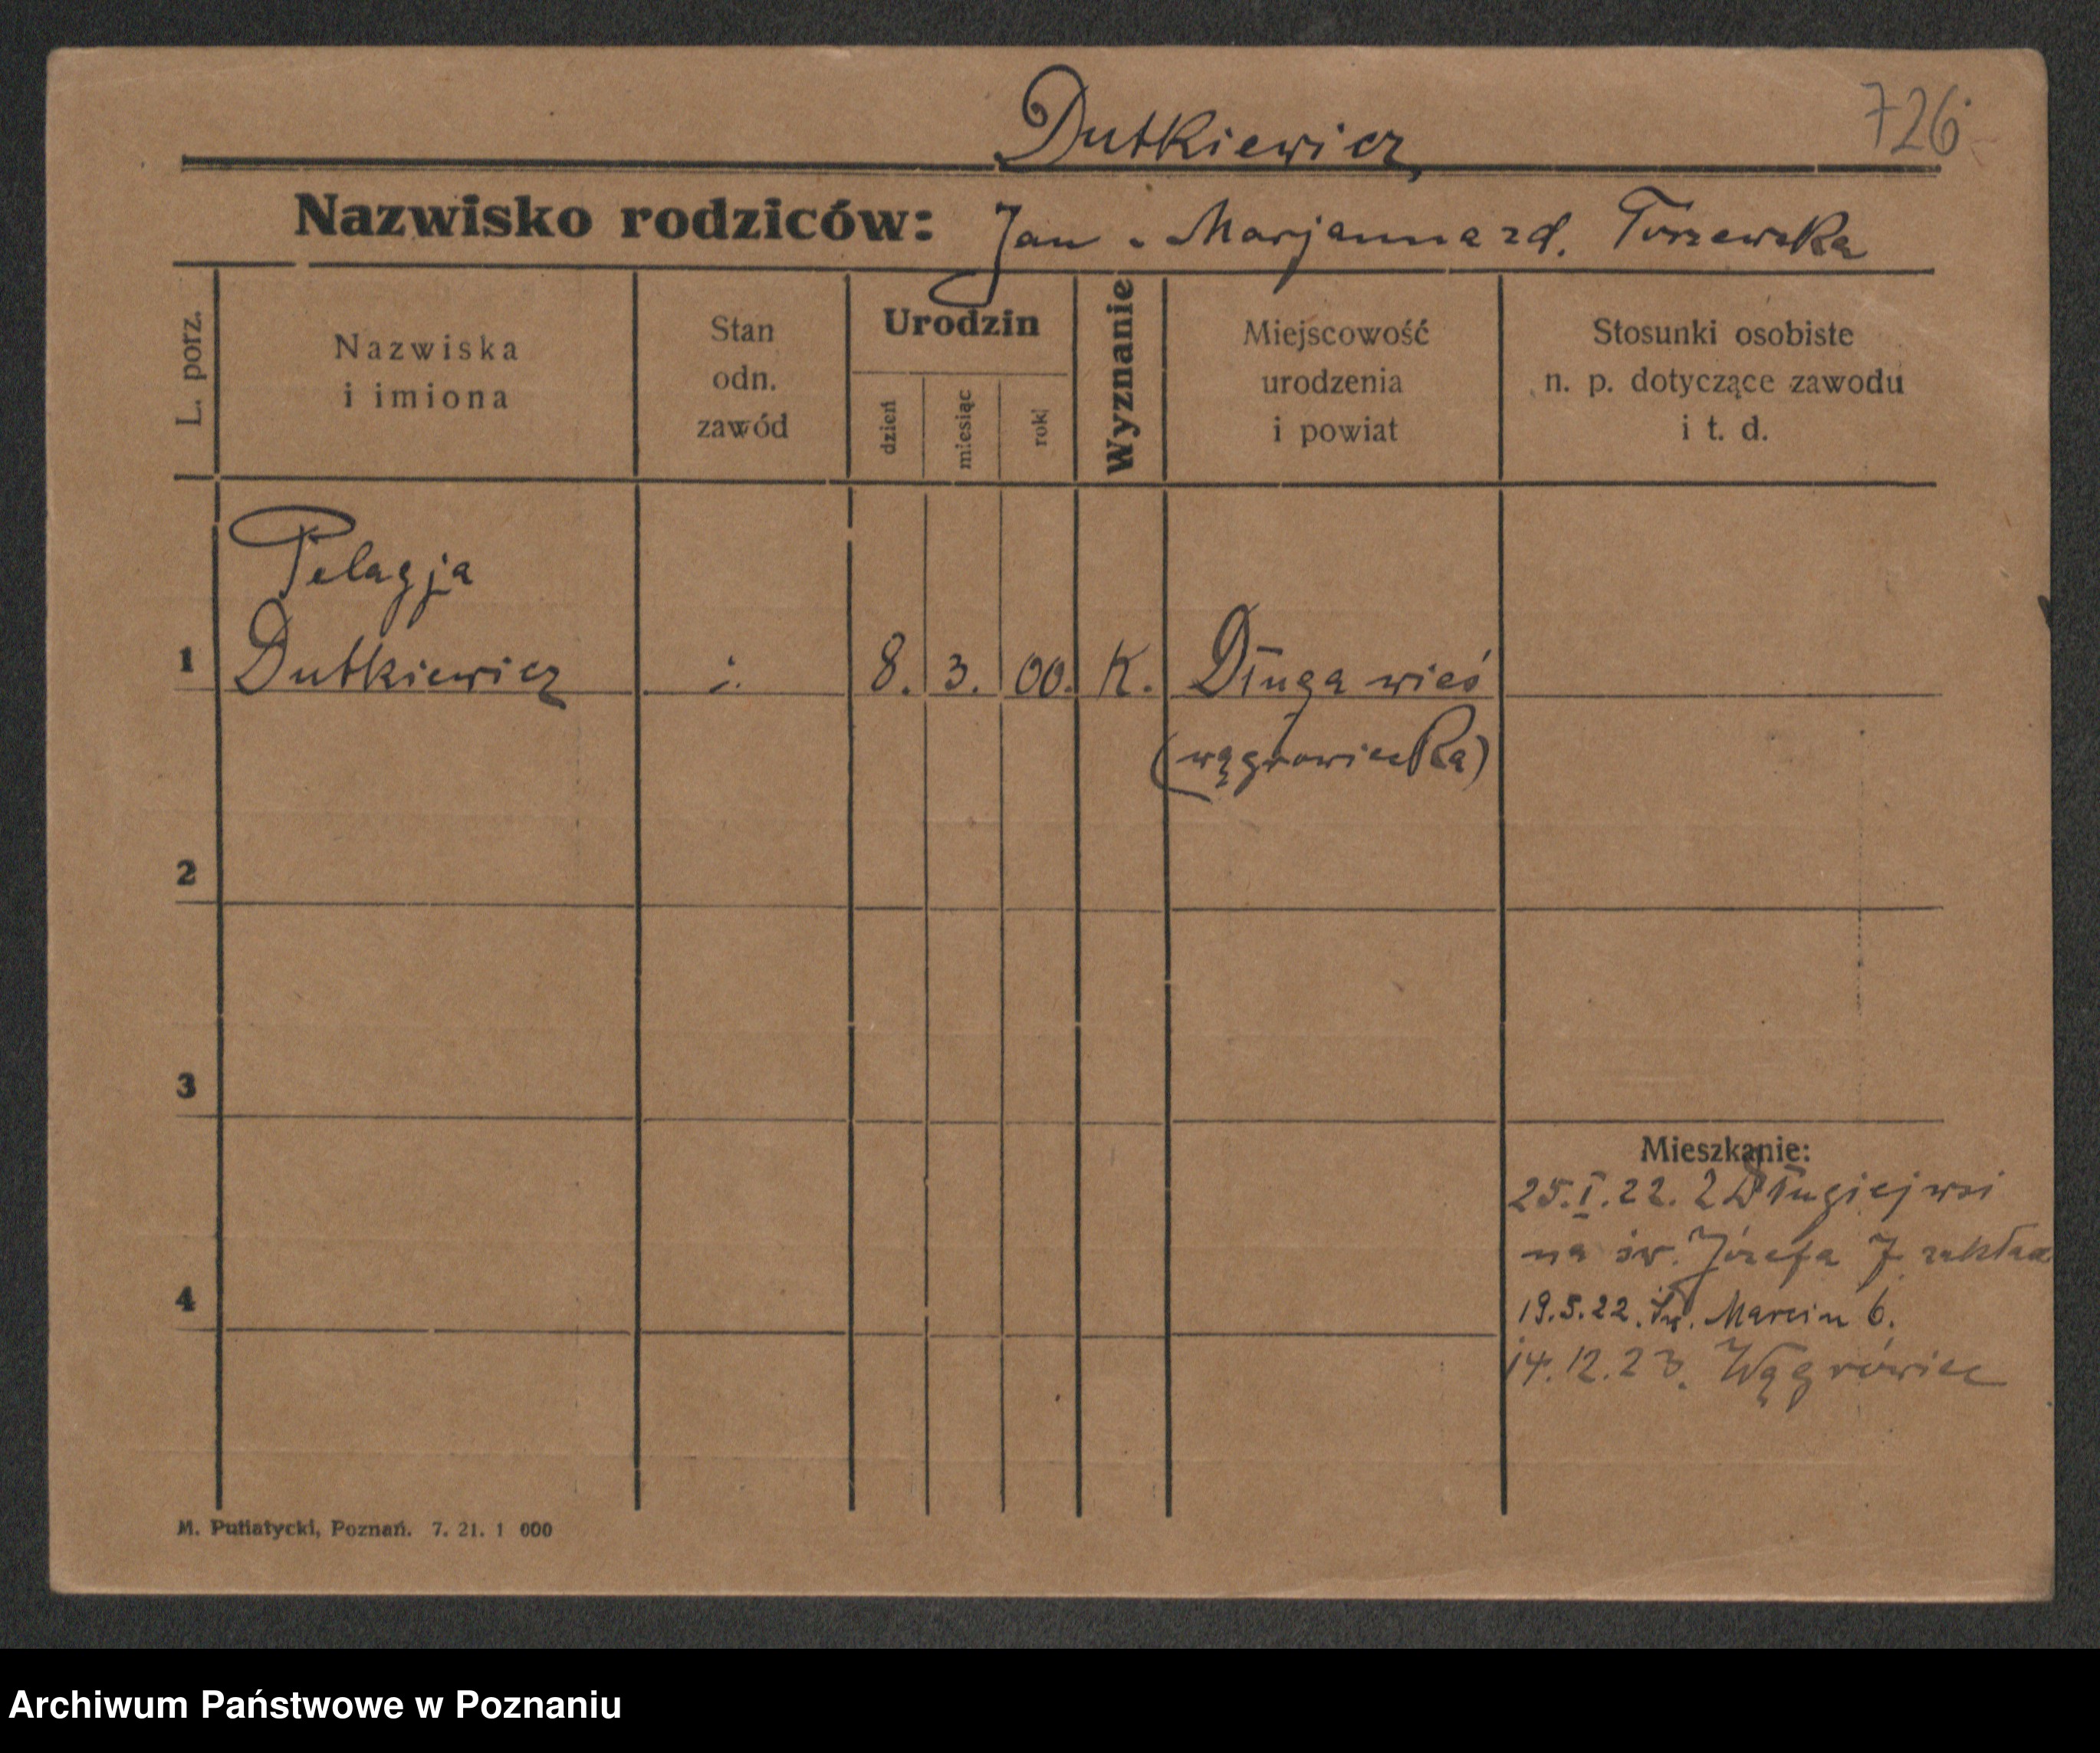 Dutkiewicz
726
Nazwisko rodziców: Jan - Marjanna zd. Torzewska
L. porz.
Nazwiska
i imiona
Stan
odn.
zawód
Urodzin
dzień
miesiąc
rok
Wyznanie
Miejscowość
urodzenia
i powiat
Stosunki osobiste
n. p. dotyczące zawodu
i t. d.
Pelagja
1 Dutkiewicz 8. 3. 00. K. Długa wieś
(wągrowiecka)
2
3
Mieszkanie:
25.I.22. z Długiej wsi
na św. Józefa 7 zakład
19.5.22. Św. Marcin 6.
4
14.12.23. Wągrówiec
M. Putiatycki, Poznań. 7. 21. 1 000
Archiwum Państwowe w Poznaniu